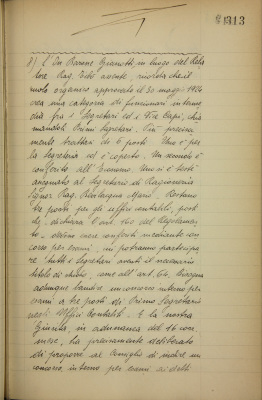 1313
8) L'On. Barone Gianotti, in luogo del Rela
tore Rag. assente, ricorda che il
ruolo organico approvato il 30 maggio
crea una categoria di funzionari interme
dia fra i Segretari ed i Vice Capi, chia
mandoli Primi Segretari. Più precisa
mente trattasi di 6 posti. Uno è per
la Segreteria ed è coperto. Un secondo è
conferito all'Economo. Uno si è testè
assegnato al Segretario di Ragioneria
Signor Rag. Mario. Restano
tre posti per gli uffici contabili, posti
che, dichiara l'art. del Regolamen
to, devono essere conferiti mediante con
corso per esami, cui potranno partecipa
re tutti i Segretari aventi il necessario
titolo di studio, come all'art. 60. Bisogna
adunque bandire un concorso interno per
esami a tre posti di Primo Segretario
negli Uffici Contabili. E la nostra
Giunta, in adunanza del 16 corr.
mese, ha precisamente deliberato
di proporre al Consiglio di indire un
concorso interno per esami ai detti